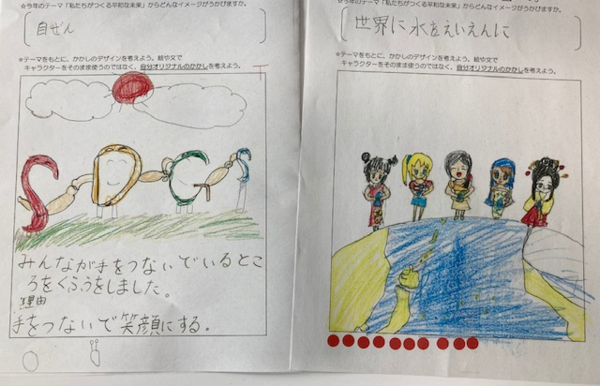 ☆今年のテーマ「私たちがつくる平和な未来」からどんなイメージがうかびますか。
自ぜん
*テーマをもとに、かかしのデザインを考えよう。絵や文で
キャラクターをそのまま使うのではなく、自分オリジナルのかかしを考えよう。
SDGs
みんなが手をつないでいるとこ
ろをくふうをしました。
理由
手をつないで笑顔にする。
☆今年のテーマ「私たちがつくる平和な未来」からどんなイメージがうかびますか。
世界に水をえいえんに
*テーマをもとに、かかしのデザインを考えよう。絵や文で
キャラクターをそのまま使うのではなく、自分オリジナルのかかしを考えよう。